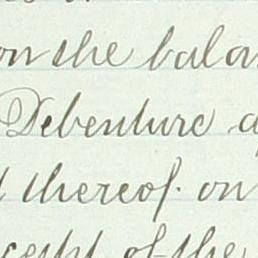 on the bala
Debenture a
thereof. on
of the